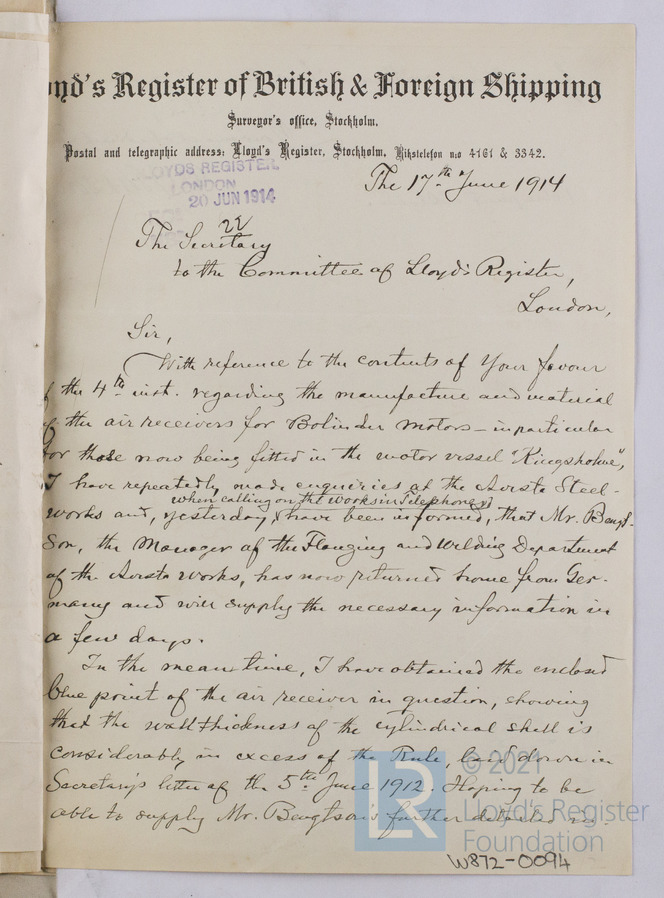 oyd's Register of British & Foreign Shipping
Surveyor's office, Stockholm.
Postal and telegraphic address: Lloyd's Register, Stockholm, Rikstelefon n:o 4161 & 3342.
LLOYDS REGISTER,
LONDON
20 JUN 1914
The 17th June 1914
The Secretary
to the Committee of Lloyd's Register,
London,
Sir,
With reference to the contents of Your favour
f the 4th inst. regarding the manufacture and material
of the air receivers for Bolinder motors – in particular
for those now being fitted in the motor vessel "Kingsholme",
I have repeatedly made enquiries at the Avesta Steel-
when calling on the works in Telephone
works and, yesterday, I have been informed, that Mr. Bengt-
son, the Manager of the Flanging and Welding Department
of the Avesta Works, has now returned home from Ger-
many and will supply the necessary information in
a few days.
In the mean time, I have obtained the enclosed
blue point of the air receiver in question, showing
that the wall thickness of the cylindrical shell is
considerably in excess of the Rule, laid down in
Secretary's letter of the 5th June 1912. Hoping to be
able to supply Mr. Bengtson's further detailed in-
© 2021
LR
Lloyd's Register
Foundation
W872-0094